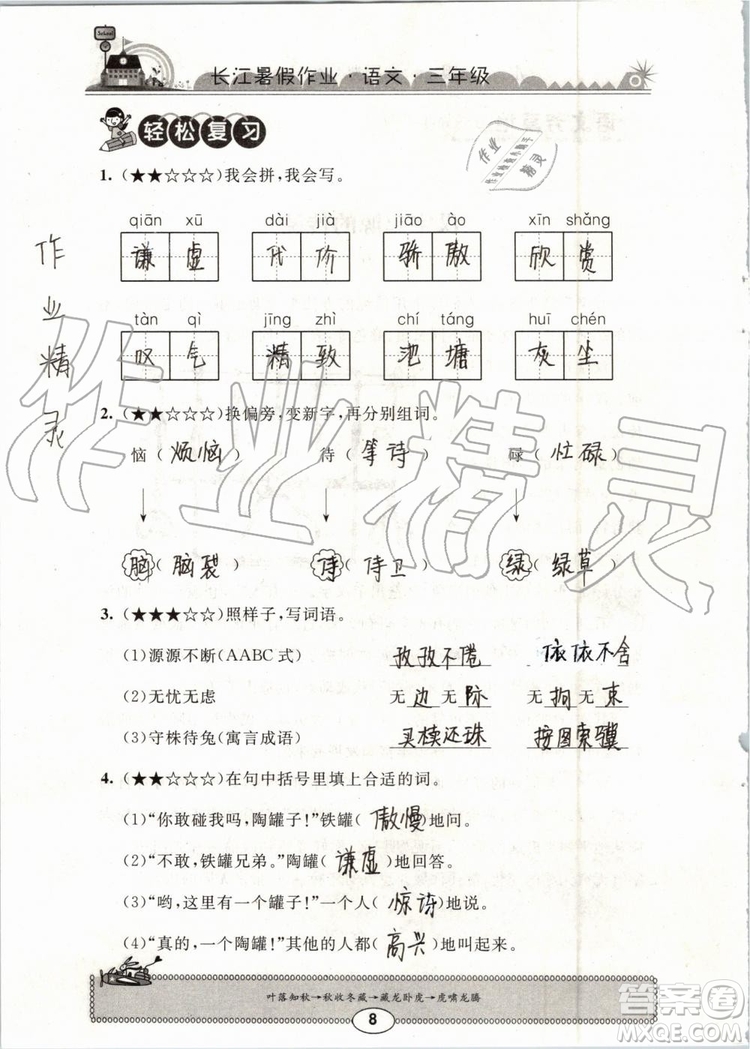 School
长江暑假作业·语文·三年级
轻松复习
作业
精灵
1.(★★☆☆☆)我会拼,我会写。
qiān xū dài jià jiāo ào xīn shǎng
谦虚 代价 骄傲 欣赏
tàn qì jīng zhì chí táng huī chén
叹气 精致 池塘 灰尘
作业精灵
2.(★★☆☆☆)换偏旁,变新字,再分别组词。
恼(烦恼) 待(等待) 碌(忙碌)
脑(脑裂) 侍(侍卫) 绿(绿草)
3.(★★★☆☆)照样子,写词语。
(1)源源不断(AABC式) 孜孜不倦 依依不舍
(2)无忧无虑 无边无际 无拘无束
(3)守株待兔(寓言成语) 买椟还珠 按图索骥
4.(★★☆☆☆)在句中括号里填上合适的词。
(1)“你敢碰我吗,陶罐子!”铁罐(傲慢)地问。
(2)“不敢,铁罐兄弟。”陶罐(谦虚)地回答。
(3)“哟,这里有一个罐子!”一个人(惊讶)地说。
(4)“真的,一个陶罐!”其他的人都(高兴)地叫起来。
叶落知秋→秋收冬藏→藏龙卧虎→虎啸龙腾
8
作业精灵
答案圈
MXQE.COM